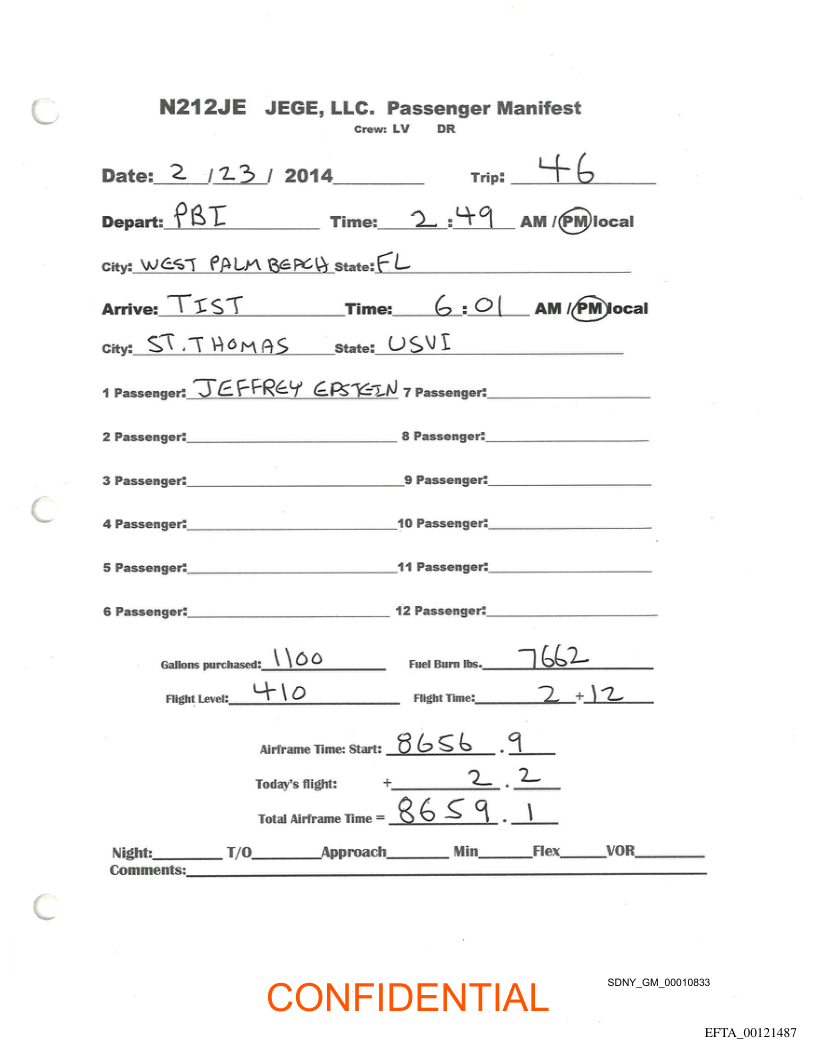 N212JE JEGE, LLC. Passenger Manifest
Crew: LV DR
Date: 2 / 23 / 2014
Trip: 46
Depart: PBI Time: 2 : 49 AM / PM local
City: WEST PALM BEACH State: FL
Arrive: TIST Time: 6 : 01 AM / PM local
City: ST. THOMAS State: USVI
1 Passenger: JEFFREY EPSTEIN 7 Passenger:
2 Passenger: 8 Passenger:
3 Passenger: 9 Passenger:
4 Passenger: 10 Passenger:
5 Passenger: 11 Passenger:
6 Passenger: 12 Passenger:
Gallons purchased: 1100 Fuel Burn lbs. 7662
Flight Level: 410 Flight Time: 2 + 12
Airframe Time: Start: 8656 . 9
Today's flight: + 2 . 2
Total Airframe Time = 8659 . 1
Night: T/O Approach Min Flex VOR
Comments:
SDNY_GM_00010833
CONFIDENTIAL
EFTA_00121487